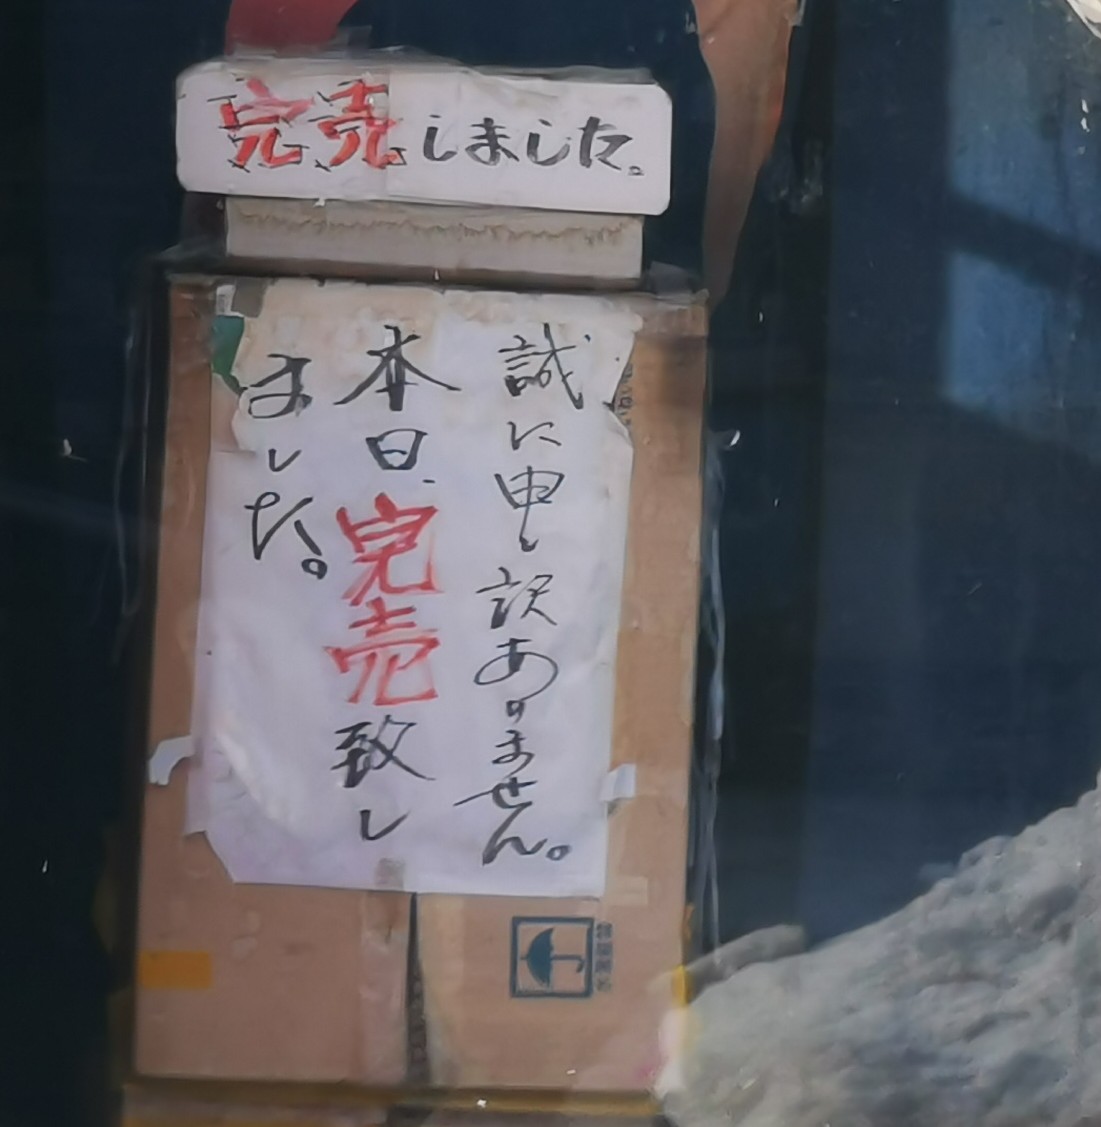 完売しました。
誠に申し訳ありません。
本日、完売致し
ました。